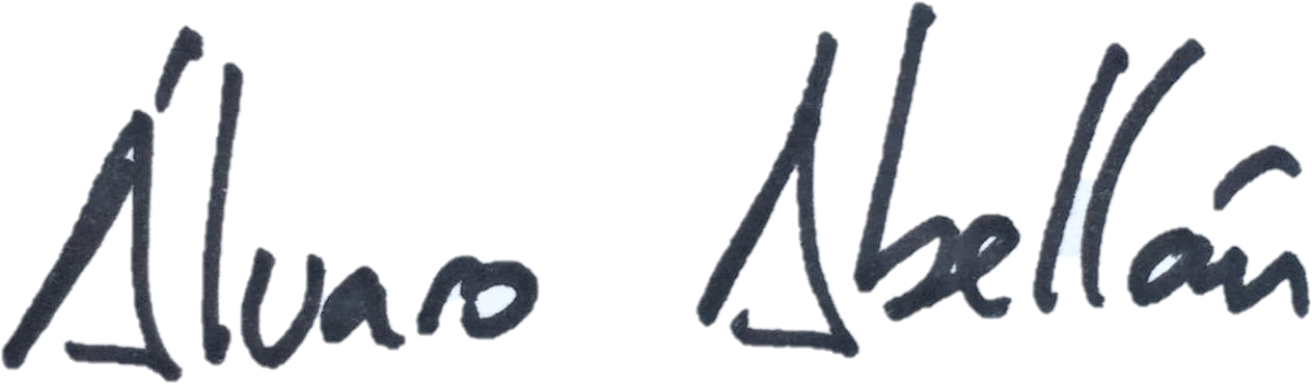 Álvaro Abellán